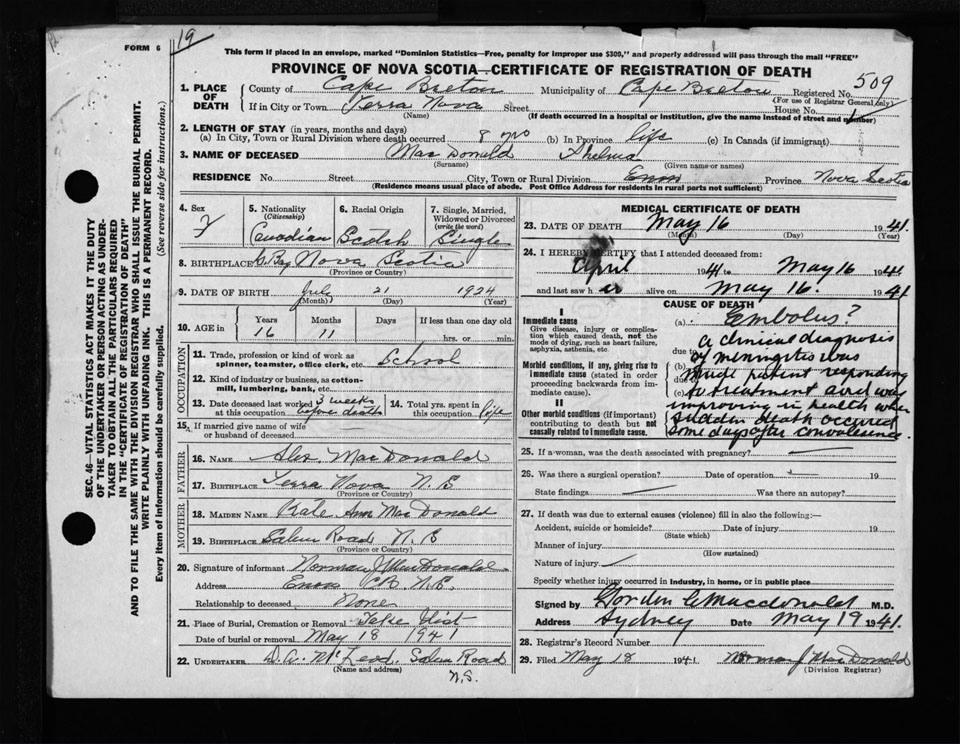 FORM 6
19
This form if placed in an envelope, marked "Dominion Statistics—Free, penalty for improper use $300," and properly addressed will pass through the mail "FREE"
PROVINCE OF NOVA SCOTIA—CERTIFICATE OF REGISTRATION OF DEATH
509
SEC. 46—VITAL STATISTICS ACT MAKES IT THE DUTY
OF THE UNDERTAKER OR PERSON ACTING AS UNDER-
TAKER TO OBTAIN ALL THE PARTICULARS REQUIRED
IN THE "CERTIFICATE OF REGISTRATION OF DEATH"
AND TO FILE THE SAME WITH THE DIVISION REGISTRAR WHO SHALL ISSUE THE BURIAL PERMIT.
WRITE PLAINLY WITH UNFADING INK. THIS IS A PERMANENT RECORD.
Every item of information should be carefully supplied.
(See reverse side for instructions.)
1. PLACE OF DEATH
County of Cape Breton Municipality of Cape Breton Registered No.
(For use of Registrar General only)
If in City or Town Terra Nova Street House No.
(Name) (If death occurred in a hospital or institution, give the name instead of street and number)
2. LENGTH OF STAY (in years, months and days)
(a) In City, Town or Rural Division where death occurred 8 mo (b) In Province life (c) In Canada (if immigrant)
3. NAME OF DECEASED MacDonald Thelma
(Surname) (Given name or names)
RESIDENCE No. Street City, Town or Rural Division Enon Province Nova Scotia
(Residence means usual place of abode. Post Office Address for residents in rural parts not sufficient)
4. Sex F
5. Nationality (Citizenship) Canadian
6. Racial Origin Scotch
7. Single, Married, Widowed or Divorced (write the word) Single
8. BIRTHPLACE G. Bay Nova Scotia
(Province or Country)
9. DATE OF BIRTH July 21 1924
(Month) (Day) (Year)
10. AGE in Years Months Days If less than one day old
16 11 hrs. or min.
OCCUPATION
11. Trade, profession or kind of work as spinner, teamster, office clerk, etc. School
12. Kind of industry or business, as cotton-mill, lumbering, bank, etc.
13. Date deceased last worked at this occupation 3 weeks before death
14. Total yrs. spent in this occupation life
15. If married give name of wife or husband of deceased
FATHER
16. NAME Alex. MacDonald
17. BIRTHPLACE Terra Nova N.S.
(Province or Country)
MOTHER
18. MAIDEN NAME Kate Ann MacDonald
19. BIRTHPLACE Salem Road N.S.
(Province or Country)
20. Signature of informant Norman J MacDonald
Address Enon C.B. N.S.
Relationship to deceased None
21. Place of Burial, Cremation or Removal
Date of burial or removal May 18 1941
22. UNDERTAKER D.A. McLeod. Salem Road
(Name and address)
N.S.
MEDICAL CERTIFICATE OF DEATH
23. DATE OF DEATH May 16 1941
(Month) (Day) (Year)
24. I HEREBY CERTIFY that I attended deceased from:
April 1941 to May 16 1941
and last saw her alive on May 16. 1941
CAUSE OF DEATH
I
Immediate cause
Give disease, injury or complication which caused death, not the mode of dying, such as heart failure, asphyxia, asthenia, etc.
(a) Embolus?
due to
Morbid conditions, if any, giving rise to immediate cause (stated in order proceeding backwards from immediate cause).
(b)
due to
(c)
II
Other morbid conditions (if important) contributing to death but not causally related to immediate cause.
a clinical diagnosis
of meningitis was
made patient responding
to treatment and was
improving in health when
sudden death occurred
some days after convalescence.
25. If a woman, was the death associated with pregnancy?
26. Was there a surgical operation? Date of operation 19
State findings Was there an autopsy?
27. If death was due to external causes (violence) fill in also the following:—
Accident, suicide or homicide? Date of injury 19
(State which)
Manner of injury
(How sustained)
Nature of injury
Specify whether injury occurred in industry, in home, or in public place
Signed by Gordon C Macdonald M.D.
Address Sydney Date May 19 1941.
28. Registrar's Record Number
29. Filed May 18 1941 Norman J MacDonald
(Division Registrar)